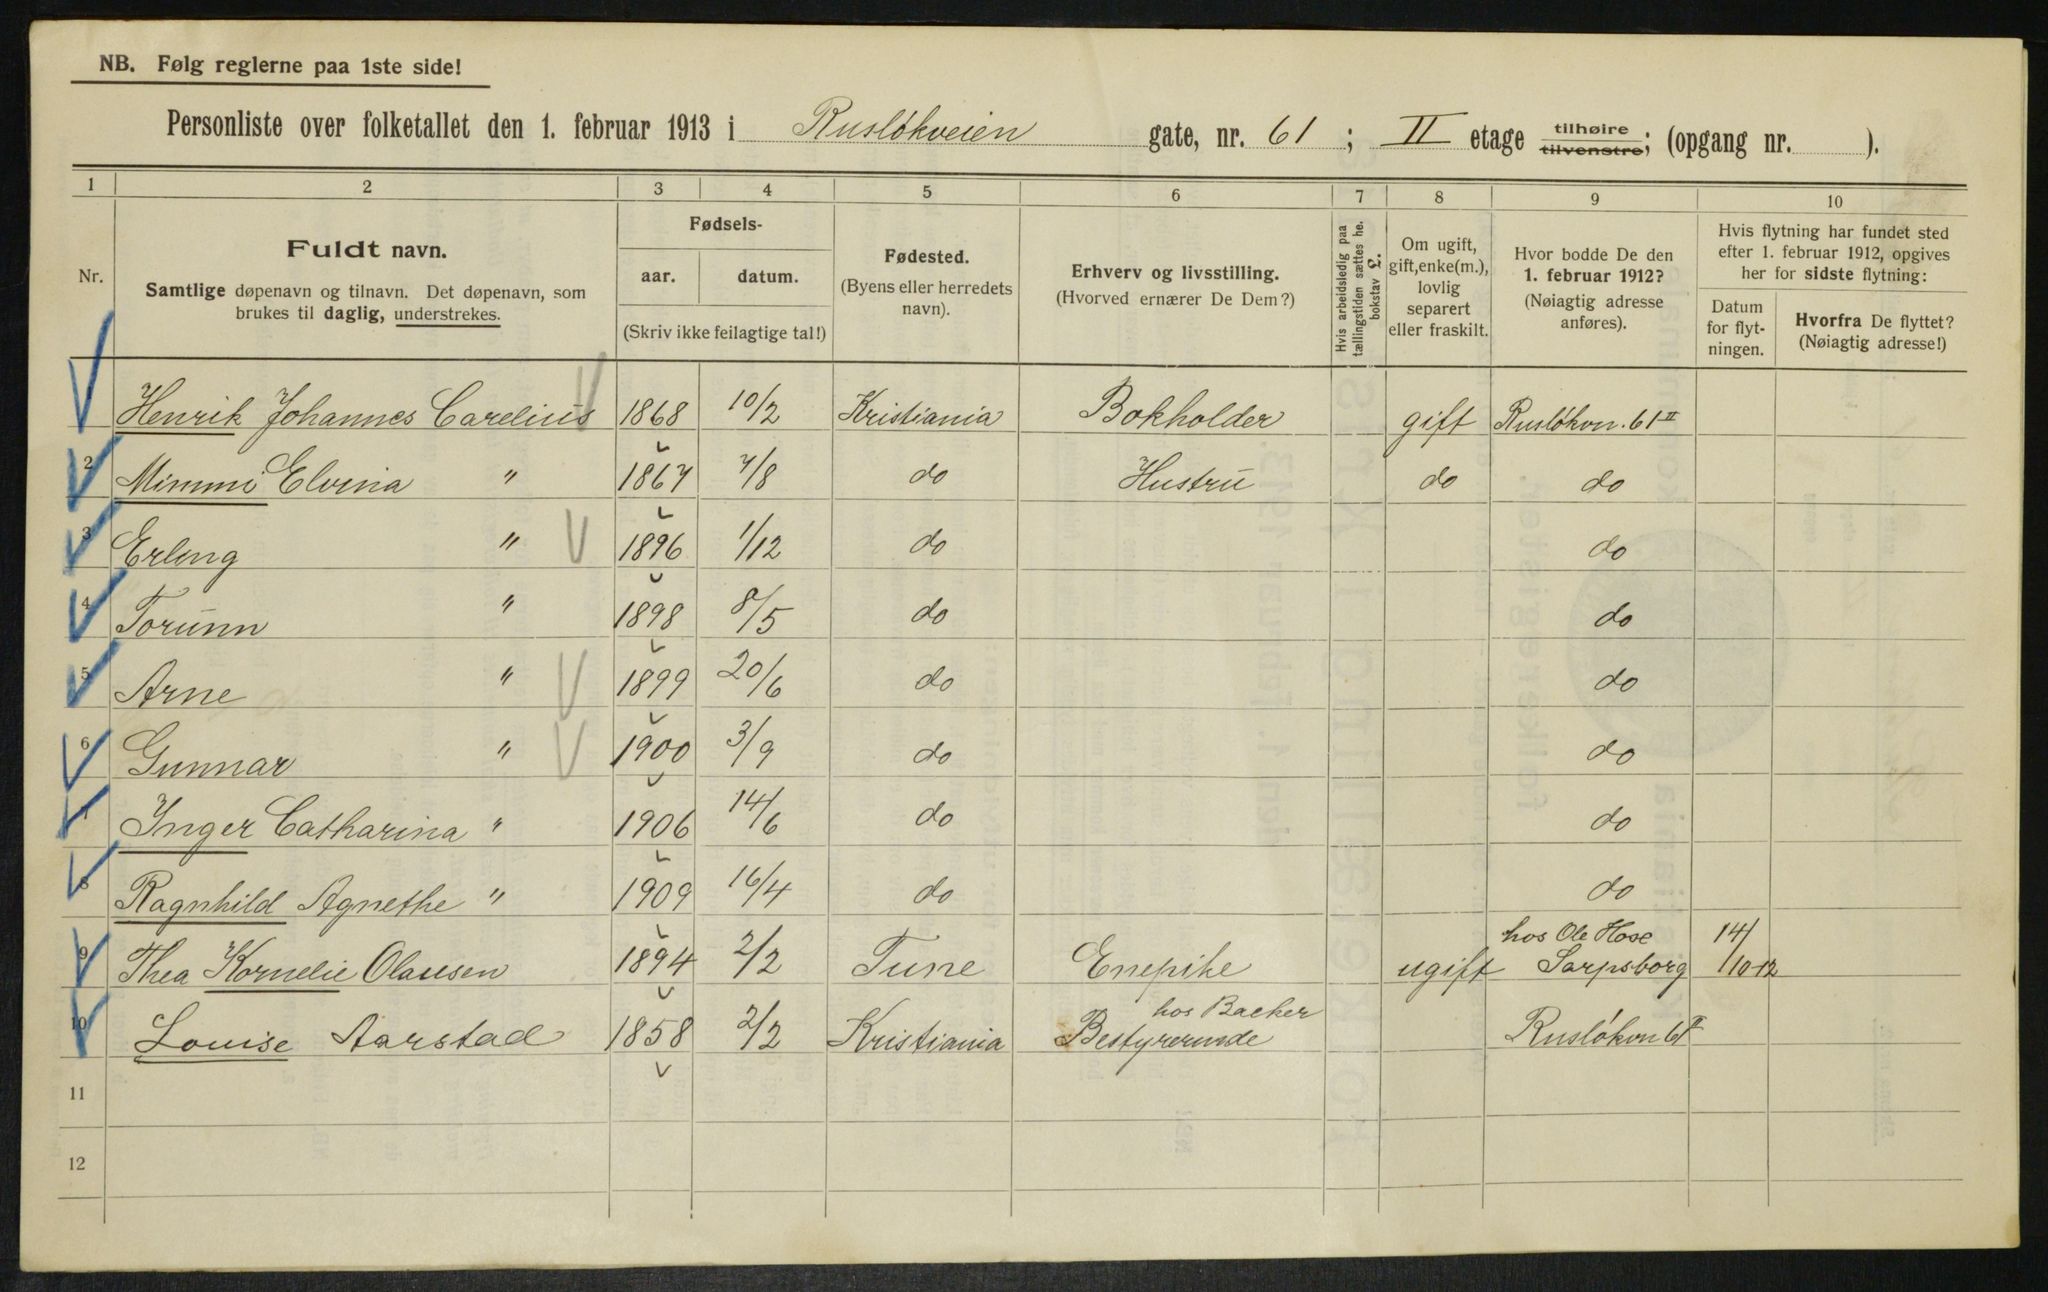 NB. Følg reglerne paa 1ste side!
Personliste over folketallet den 1. februar 1913 i Rusløkveien gate, nr. 61; II etage tilhøire tilvenstre; (opgang nr. ).
1 2 3 4 5 6 7 8 9 10
Nr.
Fuldt navn.
Samtlige døpenavn og tilnavn. Det døpenavn, som
brukes til daglig, understrekes.
Fødsels-
aar. datum.
(Skriv ikke feilagtige tal!)
Fødested.
(Byens eller herredets
navn).
Erhverv og livsstilling.
(Hvorved ernærer De Dem?)
Hvis arbeidsledig paa
tællingstiden sættes he.
bokstav L.
Om ugift,
gift, enke(m.),
lovlig
separert
eller fraskilt.
Hvor bodde De den
1. februar 1912?
(Nøiagtig adresse
anføres).
Hvis flytning har fundet sted
efter 1. februar 1912, opgives
her for sidste flytning:
Datum
for flyt-
ningen.
Hvorfra De flyttet?
(Nøiagtig adresse!)
1 Henrik Johannes Carelius 1868 10/2 Kristiania Bokholder gift Rusløkvn. 61 II
2 Mimmi Elvina " 1867 7/8 do Hustru do do
3 Erling " 1896 1/12 do do
4 Torunn " 1898 8/5 do do
5 Arne " 1899 20/6 do do
6 Gunnar " 1900 3/9 do do
7 Inger Catharina " 1906 14/6 do do
8 Ragnhild Agnethe " 1909 16/4 do do
hos Ole Hose
9 Thea Kornelie Olausen 1894 2/2 Tune Enepike ugift Sarpsborg 14/10-12
hos Backer
10 Louise Aarstad 1858 2/2 Kristiania Bestyrerinde Rusløkvn 61 II
11
12